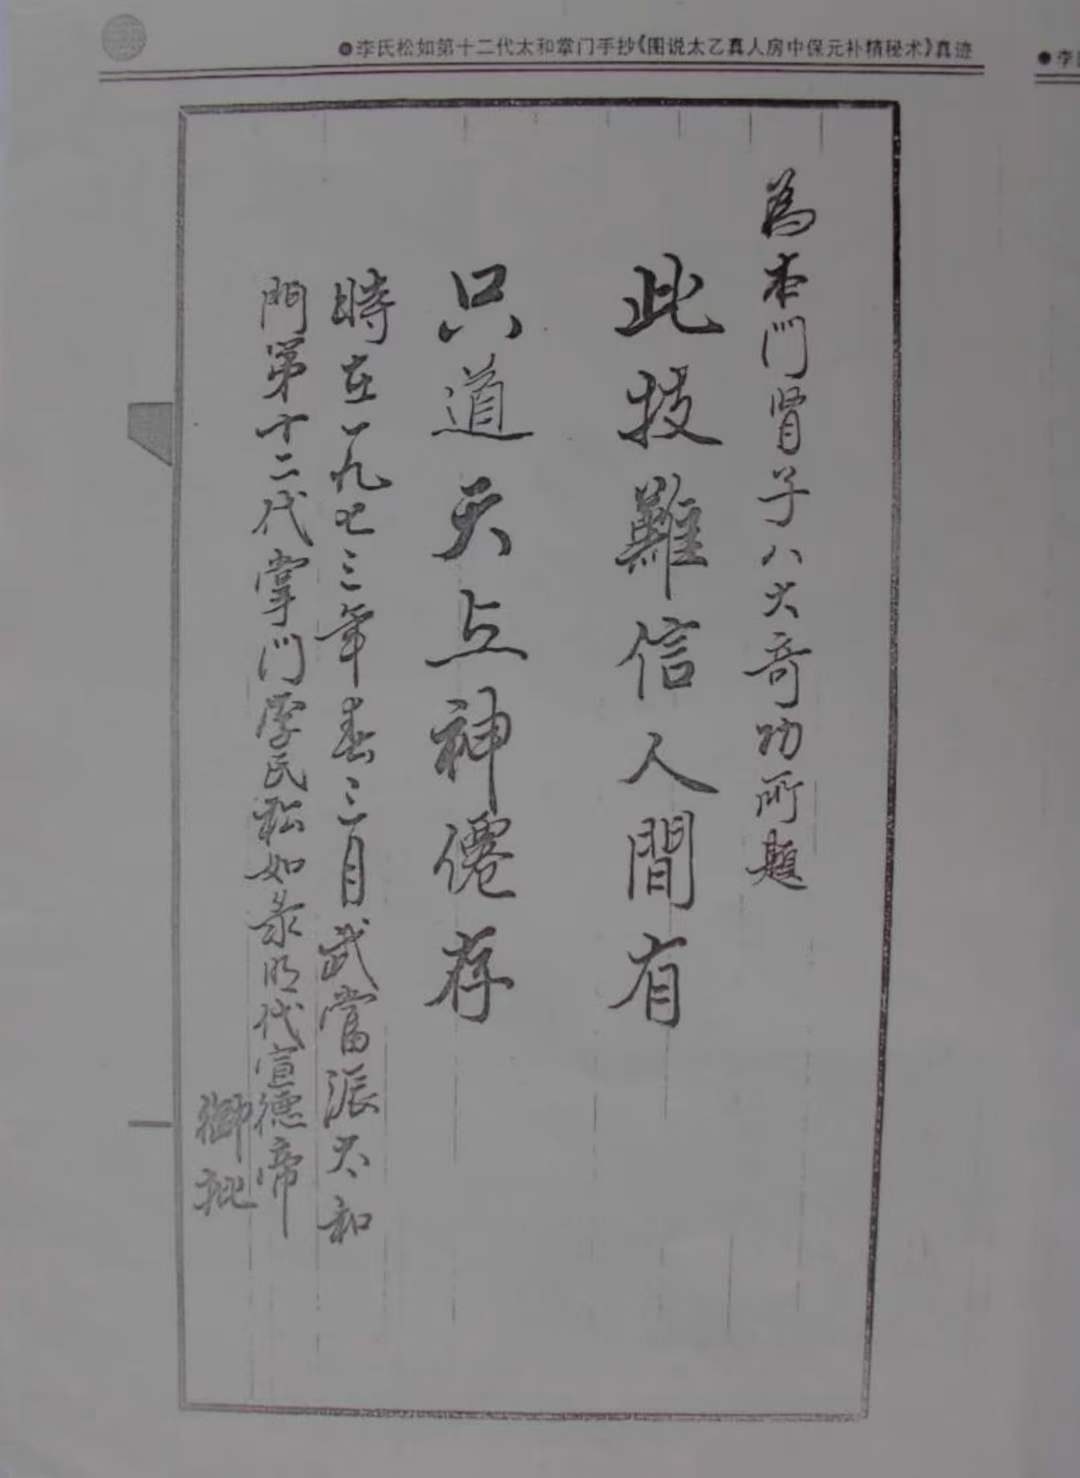 ●李氏松如第十二代太和掌门手抄《图说太乙真人房中保元补精秘术》真迹
●李
為本门肾子八大奇功所题
此技難信人間有
只道天上神僊存
時在一九七三年春三月武當派太和
門第十二代掌门李氏松如录明代宣德帝
御批